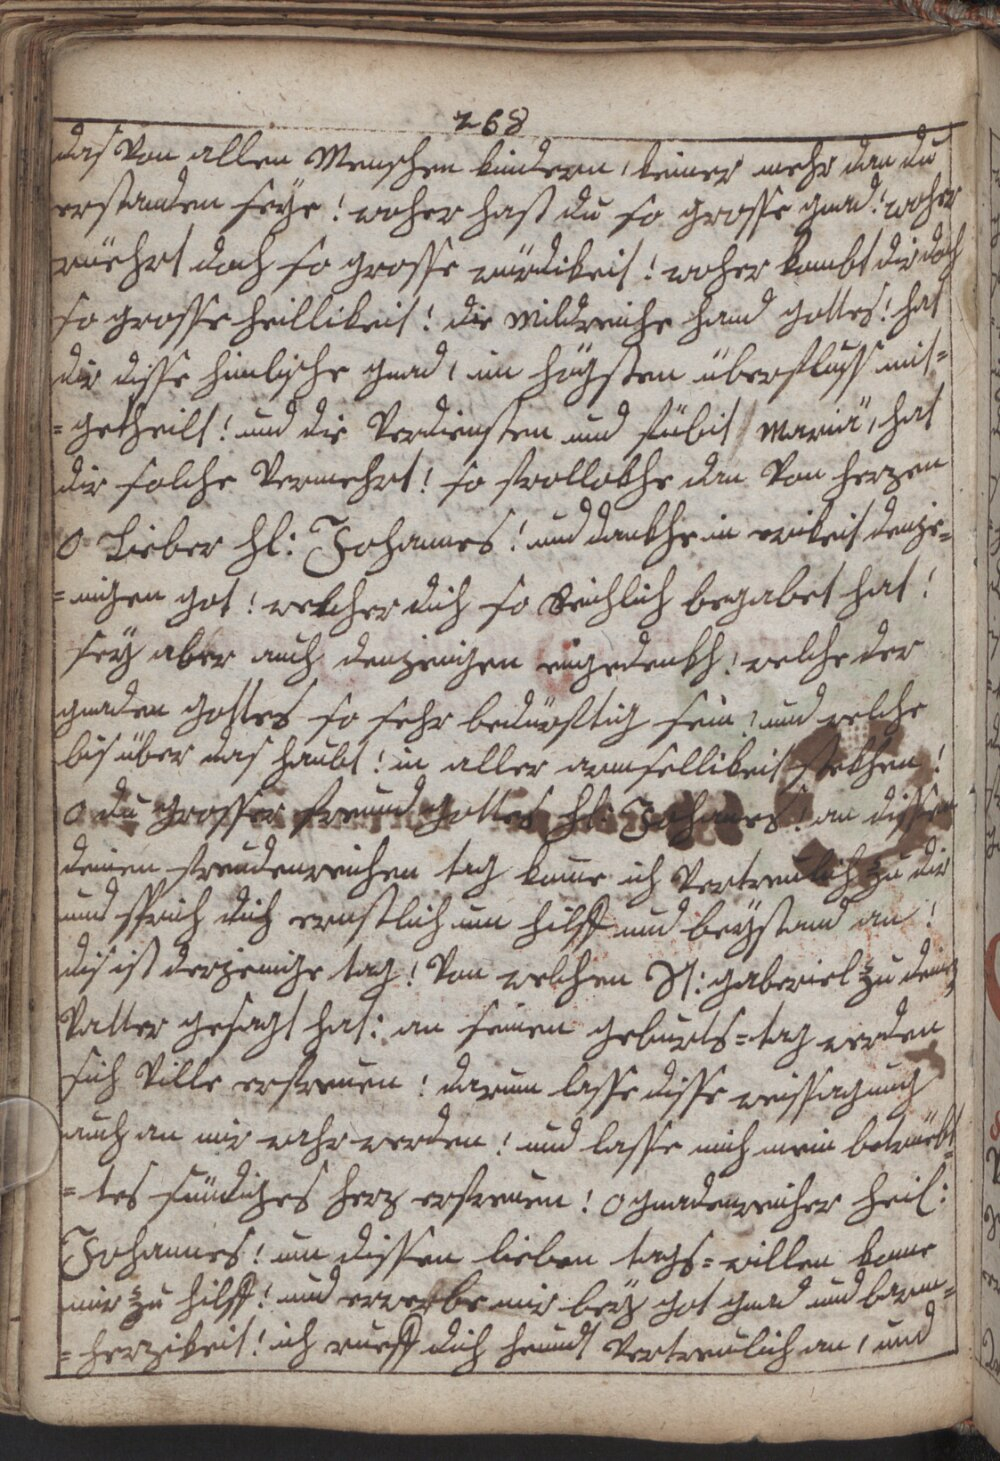 268
das von allen Menschen kindern, keiner mehr dan du
erstanden seye! woher hast du so grosse gnad! woher
rüehrt doch so grosse würdikeit! woher kombt dir doch
so grosse heillikeit! die mildreiche hand gottes! hat
dir disse himlische gnad, im högsten überfluss mit=
=getheilt! und die Verdiensten und fürbit Mariä, hat
dir solche Vermehrt! so frollokhe dan Von herzen
O Lieber hl: Johannes! und dankhe in ewikeit denje=
=nigen got! welcher dich so Reichlich begabet hat!
sey aber auch denjenigen eingedenkh! welche der
gnaden gottes so sehr bedürftig sein! und welche
bis über das haubt! in aller armsellikeit stekhen!
O du grosser freund gottes hl: Johannes! an dissen
deinen freudenreichen tag kome ich Vertreulich zu dir
und sprich dich ernstlich um hilff und beystand an!
dis ist derjenige tag! Von welchen St: gaberiel zu deinē
Vatter gesagt hat: an seinen geburts=tag werden
sich Ville erfreuen! darum lasse disse weissagung
auch an mir wahr werden! und lasse mich mein betrüeb=
=tes sündiges herz erfreuen! O gnadenreicher heil:
Johannes! um dissen lieben tags=willen kome
mir zu hilff! und erwerbe mir bey got gnad und barm=
=herzikeit! ich rueff dich heundt Vertreulich an, und